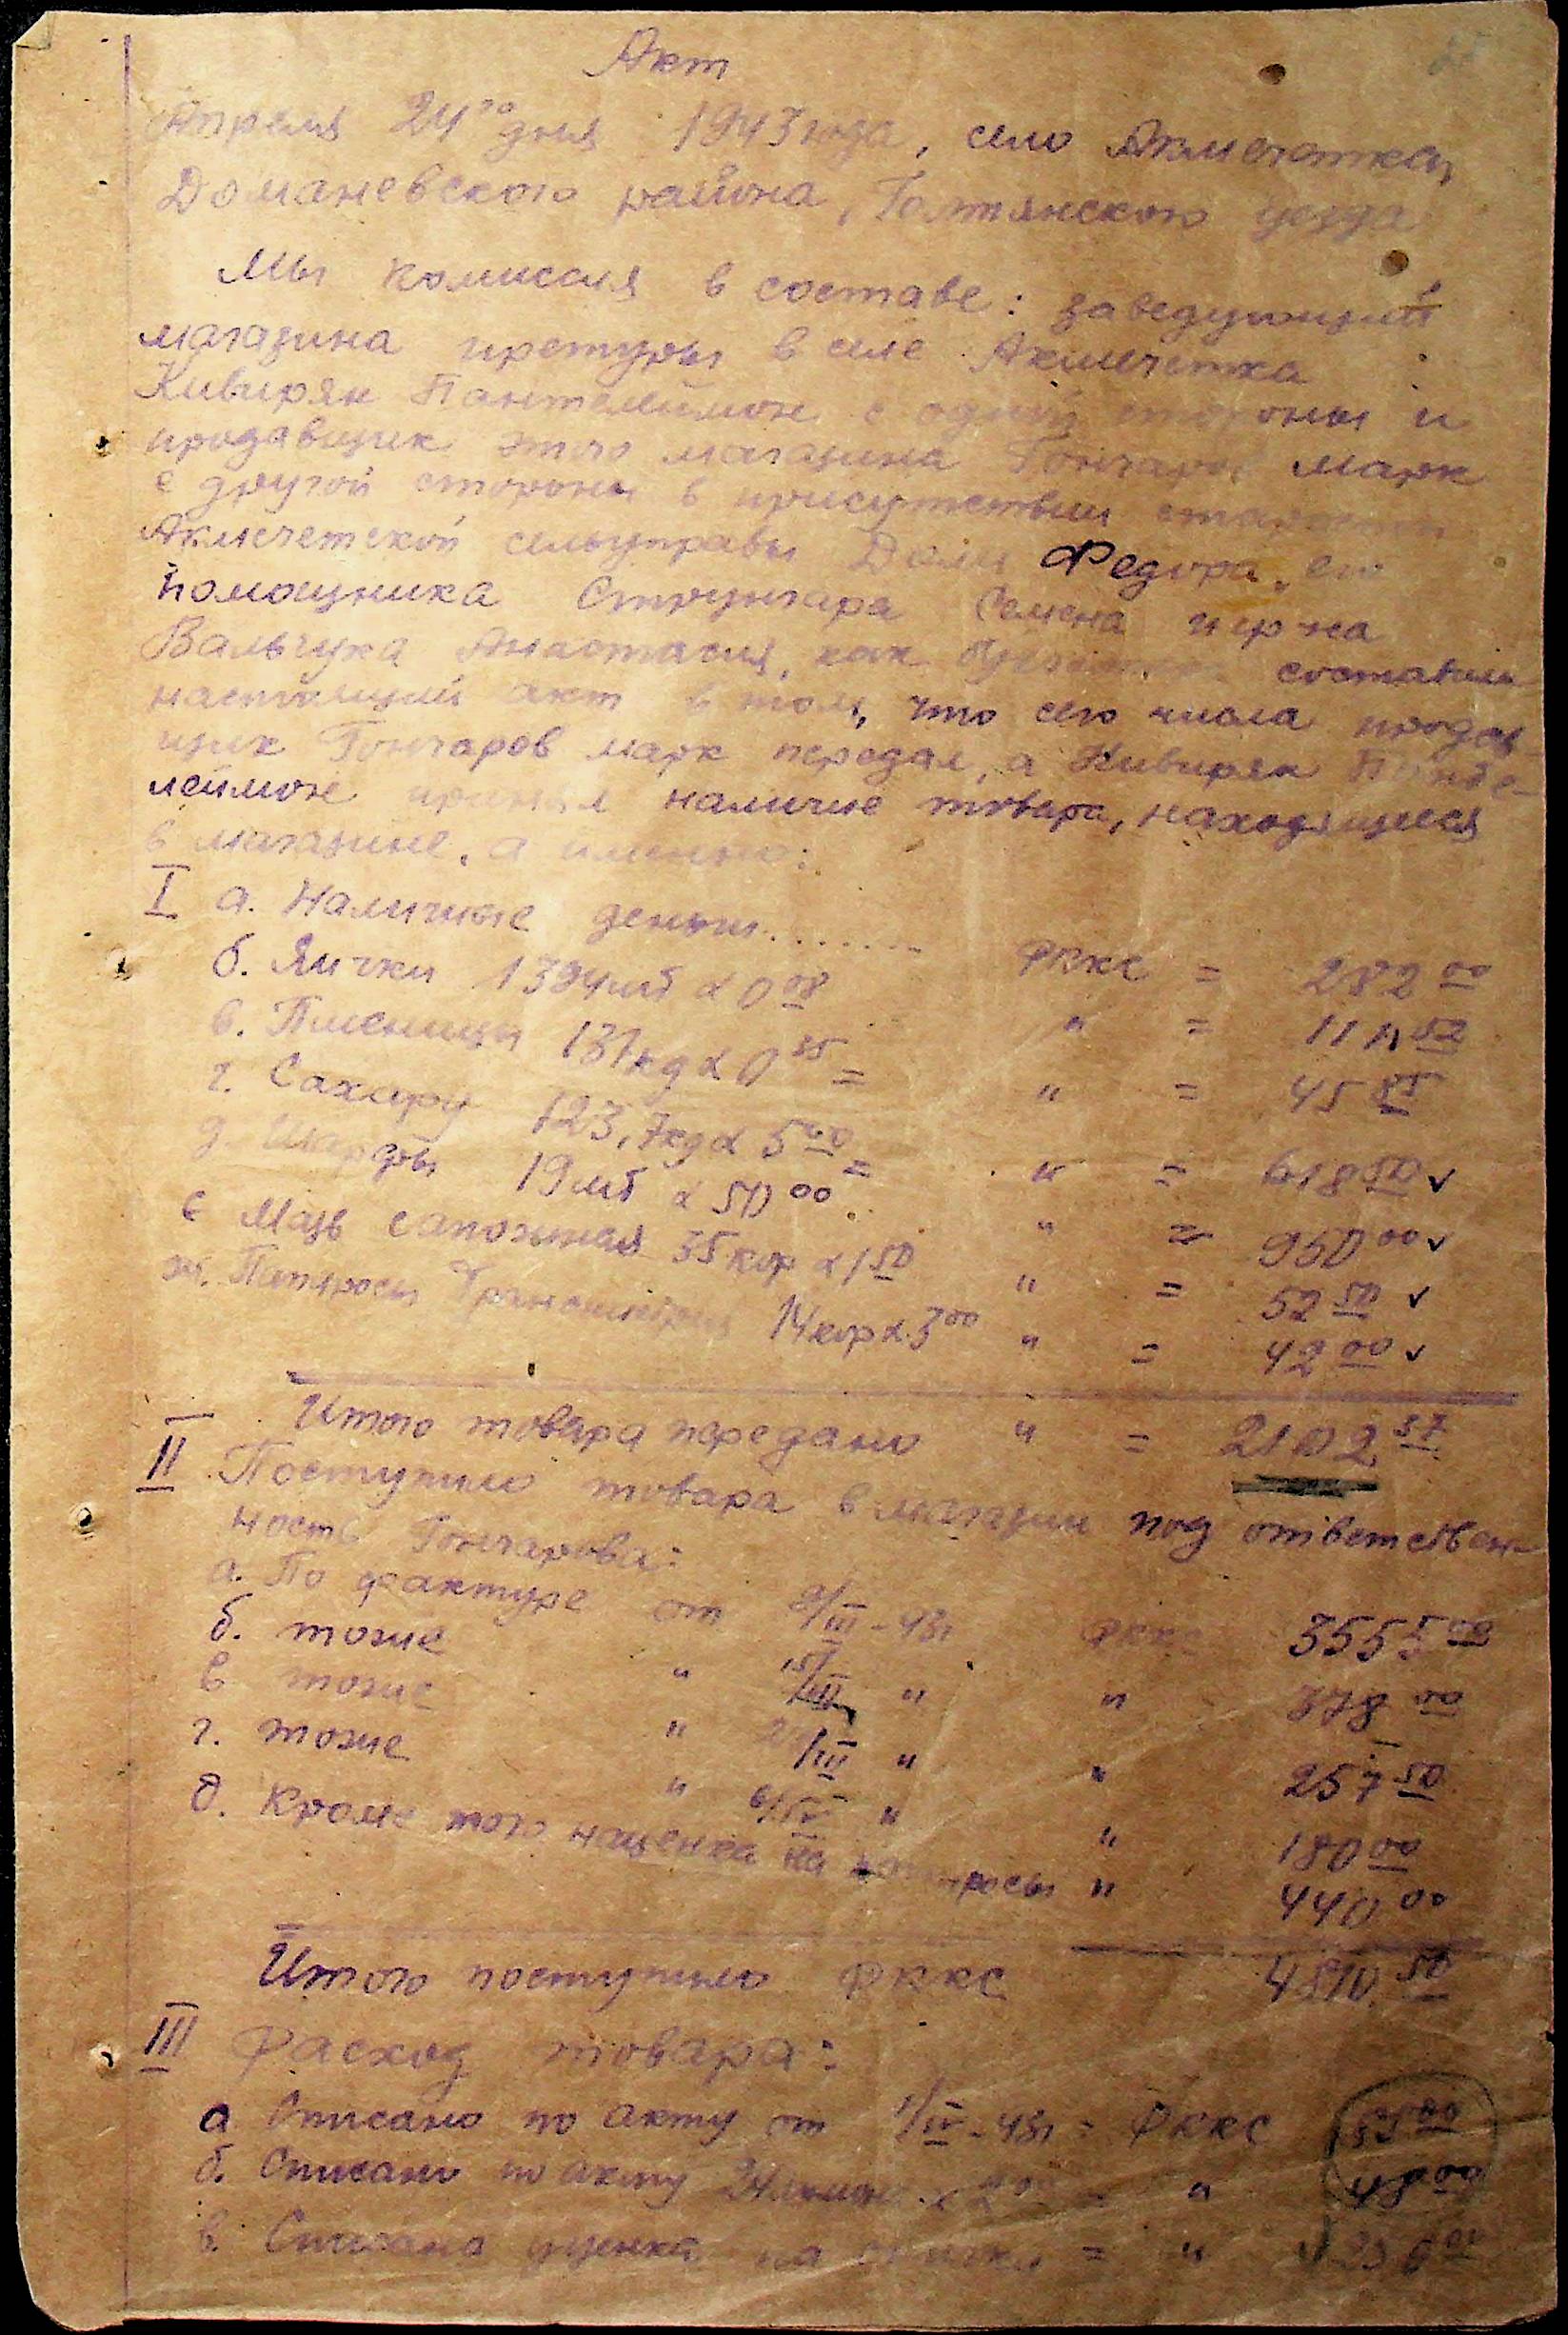 Акт
Апреля 24го дня 1943 года, село Акмечетка,
Доманевского района, Голтянского уезда
Мы комиссия в составе: заведующий
магазина претуры в селе Акмечетка
Кивиряк Пантелиимон с одной стороны и
продавщик этого магазина Гончаров Марк
с другой стороны в присутствии старосты
Акмечетской сельуправы Доли Федора, его
помощника Стрингара Семена и
Вальчука Анастасия, как составили
настоящий акт в том, что сего числа продав-
щик Гончаров Марк передал, а Кивиряк Панте-
леймон принял наличие товара, находящиеся
в магазине, а именно:
I а. Наличные деньги........ РККС = 282 00
б. Яички 1394 шт α 0 08 " = 111 52
в. Пшеницы 131 kg α 0 35 = " = 45 85
г. Сахару 123,7 kg α 5 00 = " = 618 50 ✓
д. 19 шт α 50 00 " = 950 00 ✓
е Мазь сапожная 35 кор α 1 50 " = 52 50 ✓
ж. Папиросы 14 кор α 3 00 " = 42 00 ✓
Итого товара передано " = 2102 37
II Поступило товара в магазин под ответствен-
ность Гончарова:
а. По фактуре от 9/III - 43г РККС 3555 00
б. тоже " 15/III " " 378 00
в тоже " /III " " 257 50
г. тоже " 6/IV " " 180 00
д. Кроме того наценка на папиросы " 440 00
Итого поступило РККС 4810 50
III Расход товара:
а Списано по акту от 1/IV - 43г = РККС 55 00
б. Списано по акту = " 48 00
в. Списана уценка на = "